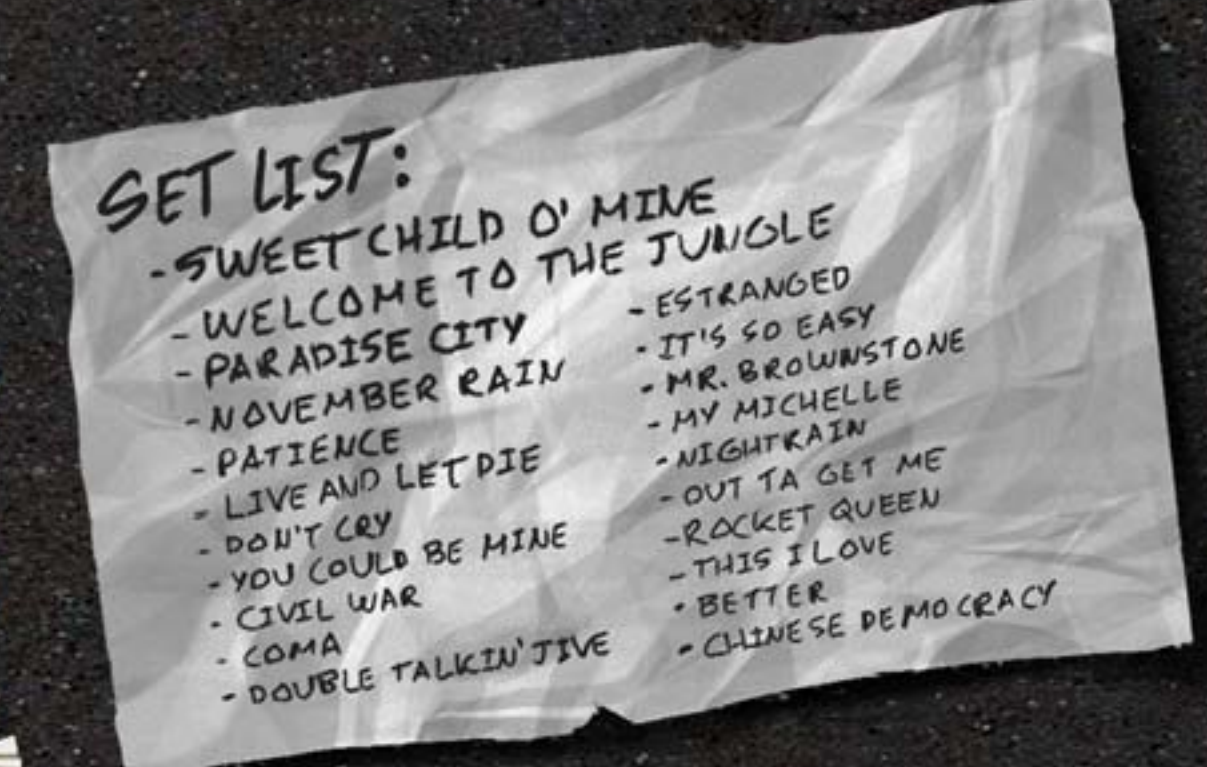 SET LIST:
- SWEET CHILD O' MINE
- WELCOME TO THE JUNGLE
- PARADISE CITY
- NOVEMBER RAIN
- PATIENCE
- LIVE AND LET DIE
- DON'T CRY
- YOU COULD BE MINE
- CIVIL WAR
- COMA
- DOUBLE TALKIN' JIVE
- ESTRANGED
- IT'S SO EASY
- MR. BROWNSTONE
- MY MICHELLE
- NIGHTRAIN
- OUT TA GET ME
- ROCKET QUEEN
- THIS I LOVE
- BETTER
- CHINESE DEMOCRACY